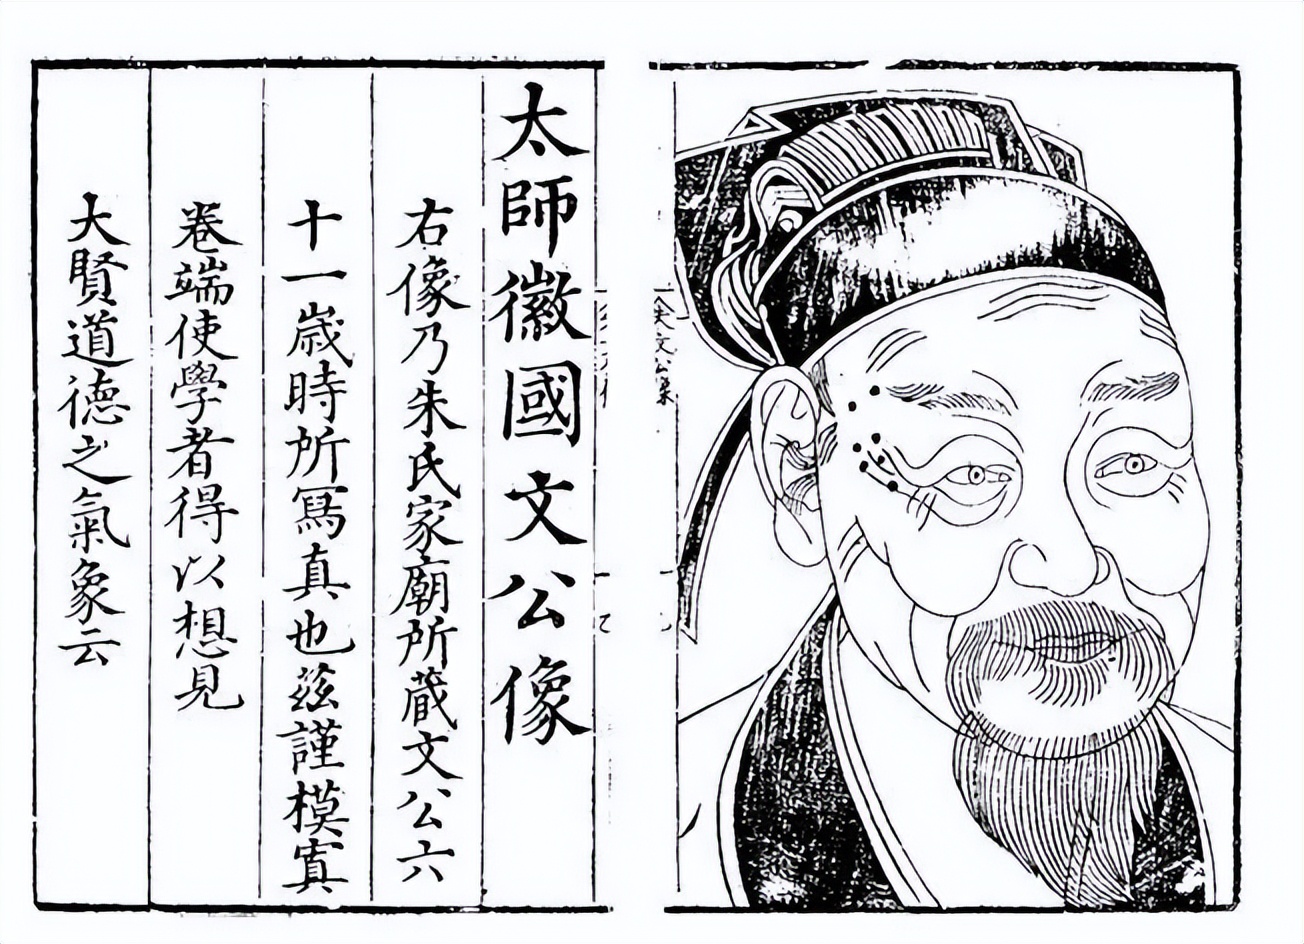 朱文公像
太師徽國文公像
右像乃朱氏家廟所蔵文公六
十一歳時所冩真也茲謹模寘
卷端使學者得以想見
大賢道徳之氣象云